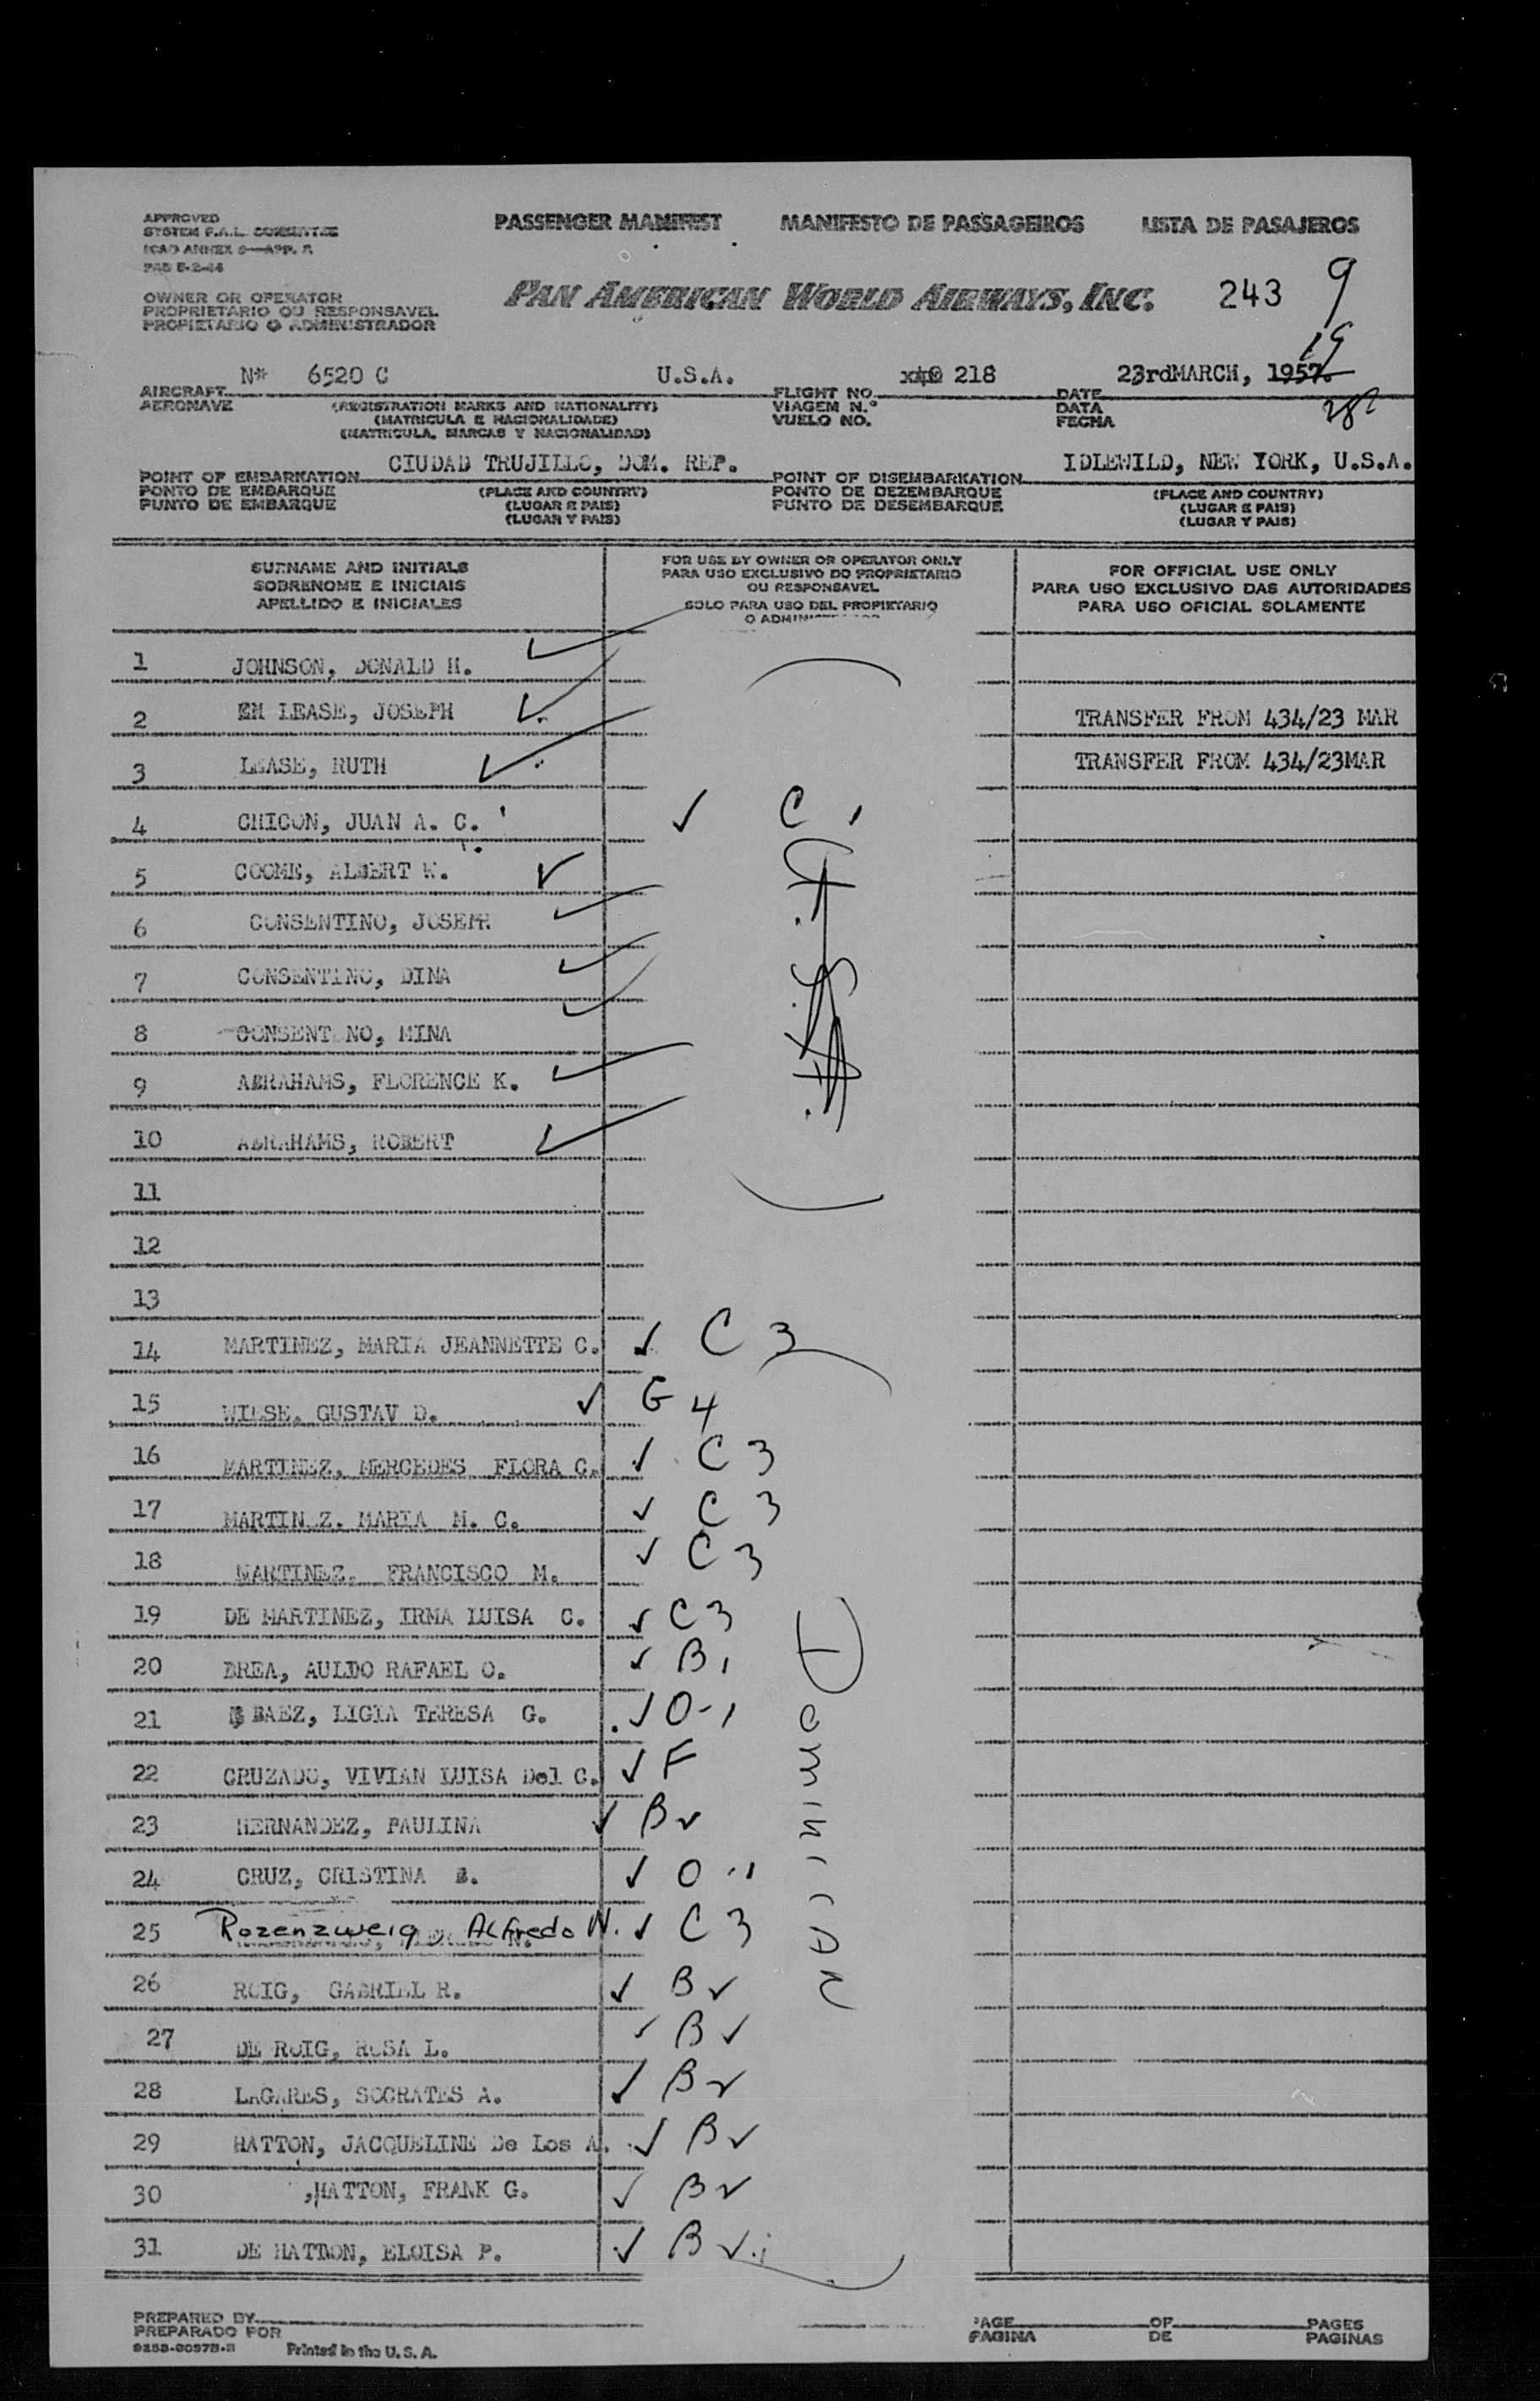 APPROVED
SYSTEM F.A.L. COMMITTEE
ICAO ANNEX 9—APP. 
PASSENGER MANIFEST MANIFESTO DE PASSAGEIROS LISTA DE PASAJEROS
OWNER OR OPERATOR
PROPRIETARIO OU RESPONSAVEL
PROPIETARIO O ADMINISTRADOR
PAN AMERICAN WORLD AIRWAYS, INC. 243 9
19
N* 6520 C U.S.A. 218 23rdMARCH, 1957.
AIRCRAFT FLIGHT NO. DATE
AERONAVE (REGISTRATION MARKS AND NATIONALITY) VIAGEM N.º DATA
(MATRICULA E NACIONALIDADE) VUELO NO. FECHA
(MATRICULA, MARCAS Y NACIONALIDAD)
CIUDAD TRUJILLO, DOM. REP. IDLEWILD, NEW YORK, U.S.A.
POINT OF EMBARKATION POINT OF DISEMBARKATION
PONTO DE EMBARQUE (PLACE AND COUNTRY) PONTO DE DEZEMBARQUE (PLACE AND COUNTRY)
PUNTO DE EMBARQUE (LUGAR E PAIS) PUNTO DE DESEMBARQUE (LUGAR E PAIS)
(LUGAR Y PAIS) (LUGAR Y PAIS)
SURNAME AND INITIALS
SOBRENOME E INICIAIS
APELLIDO E INICIALES
FOR USE BY OWNER OR OPERATOR ONLY
PARA USO EXCLUSIVO DO PROPRIETARIO
OU RESPONSAVEL
SOLO PARA USO DEL PROPIETARIO
O
FOR OFFICIAL USE ONLY
PARA USO EXCLUSIVO DAS AUTORIDADES
PARA USO OFICIAL SOLAMENTE
1 JOHNSON, DONALD H. ✓
2 LEASE, JOSEPH ✓ TRANSFER FROM 434/23 MAR
3 LEASE, RUTH ✓ TRANSFER FROM 434/23MAR
4 CHICON, JUAN A. C. ✓ C 1
5 COOME, ALBERT W. ✓
6 CONSENTINO, JOSEPH ✓
7 CONSENTINO, DINA ✓
8 CONSENT NO, MINA ✓
9 ABRAHAMS, FLORENCE K. ✓
10 ABRAHAMS, ROBERT ✓
U.S.A.
11
12
13
14 MARTINEZ, MARIA JEANNETTE C. ✓ C 3
15 WIESE, GUSTAV D. ✓ G 4
16 MARTINEZ, MERCEDES FLORA C. ✓ C 3
17 MARTIN Z. MARIA M. C. ✓ C 3
18 MARTINEZ, FRANCISCO M. ✓ C 3
19 DE MARTINEZ, IRMA LUISA C. ✓ C 3
20 BREA, AULDO RAFAEL O. ✓ B 1
21 BAEZ, LIGIA TERESA G. ✓ O-1
22 CRUZADO, VIVIAN LUISA Del C. ✓ F
23 HERNANDEZ, PAULINA ✓ B ✓
24 CRUZ, CRISTINA ✓ O-1
25 Rozenzweig, Alfredo N. ✓ C 3
26 ROIG, GABRIEL R. ✓ B ✓
27 DE ROIG, ROSA L. ✓ B ✓
28 LAGARES, SOCRATES A. ✓ B ✓
29 HATTON, JACQUELINE De Los A. ✓ B ✓
30 HATTON, FRANK G. ✓ B ✓
31 DE HATTON, ELOISA P. ✓ B ✓
Dominican
PREPARED BY PAGE OF PAGES
PREPARADO POR PAGINA DE PAGINAS
Printed in the U.S.A.